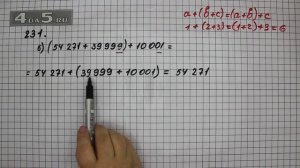 4АЛ5.RU
a+(b+c)=(a+b)+c
1+(2+3)=(1+2)+3=6
231.
б) (54 271 + 39 999) + 10 001 =
= 54 271 + (39 999 + 10 001) = 54 271